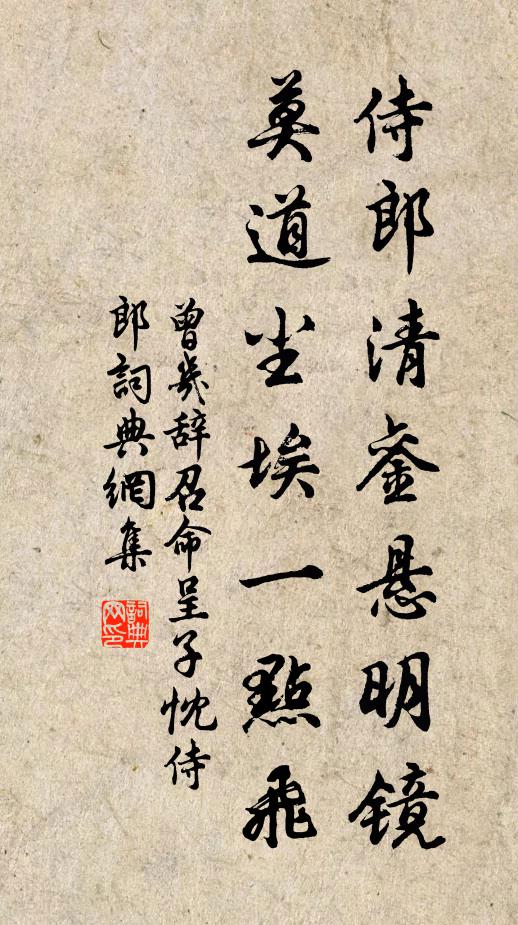 侍郎清鉴悬明镜
莫道尘埃一點飛
曾幾辞召命呈子忱侍
郎詞典網集
詞典
网印